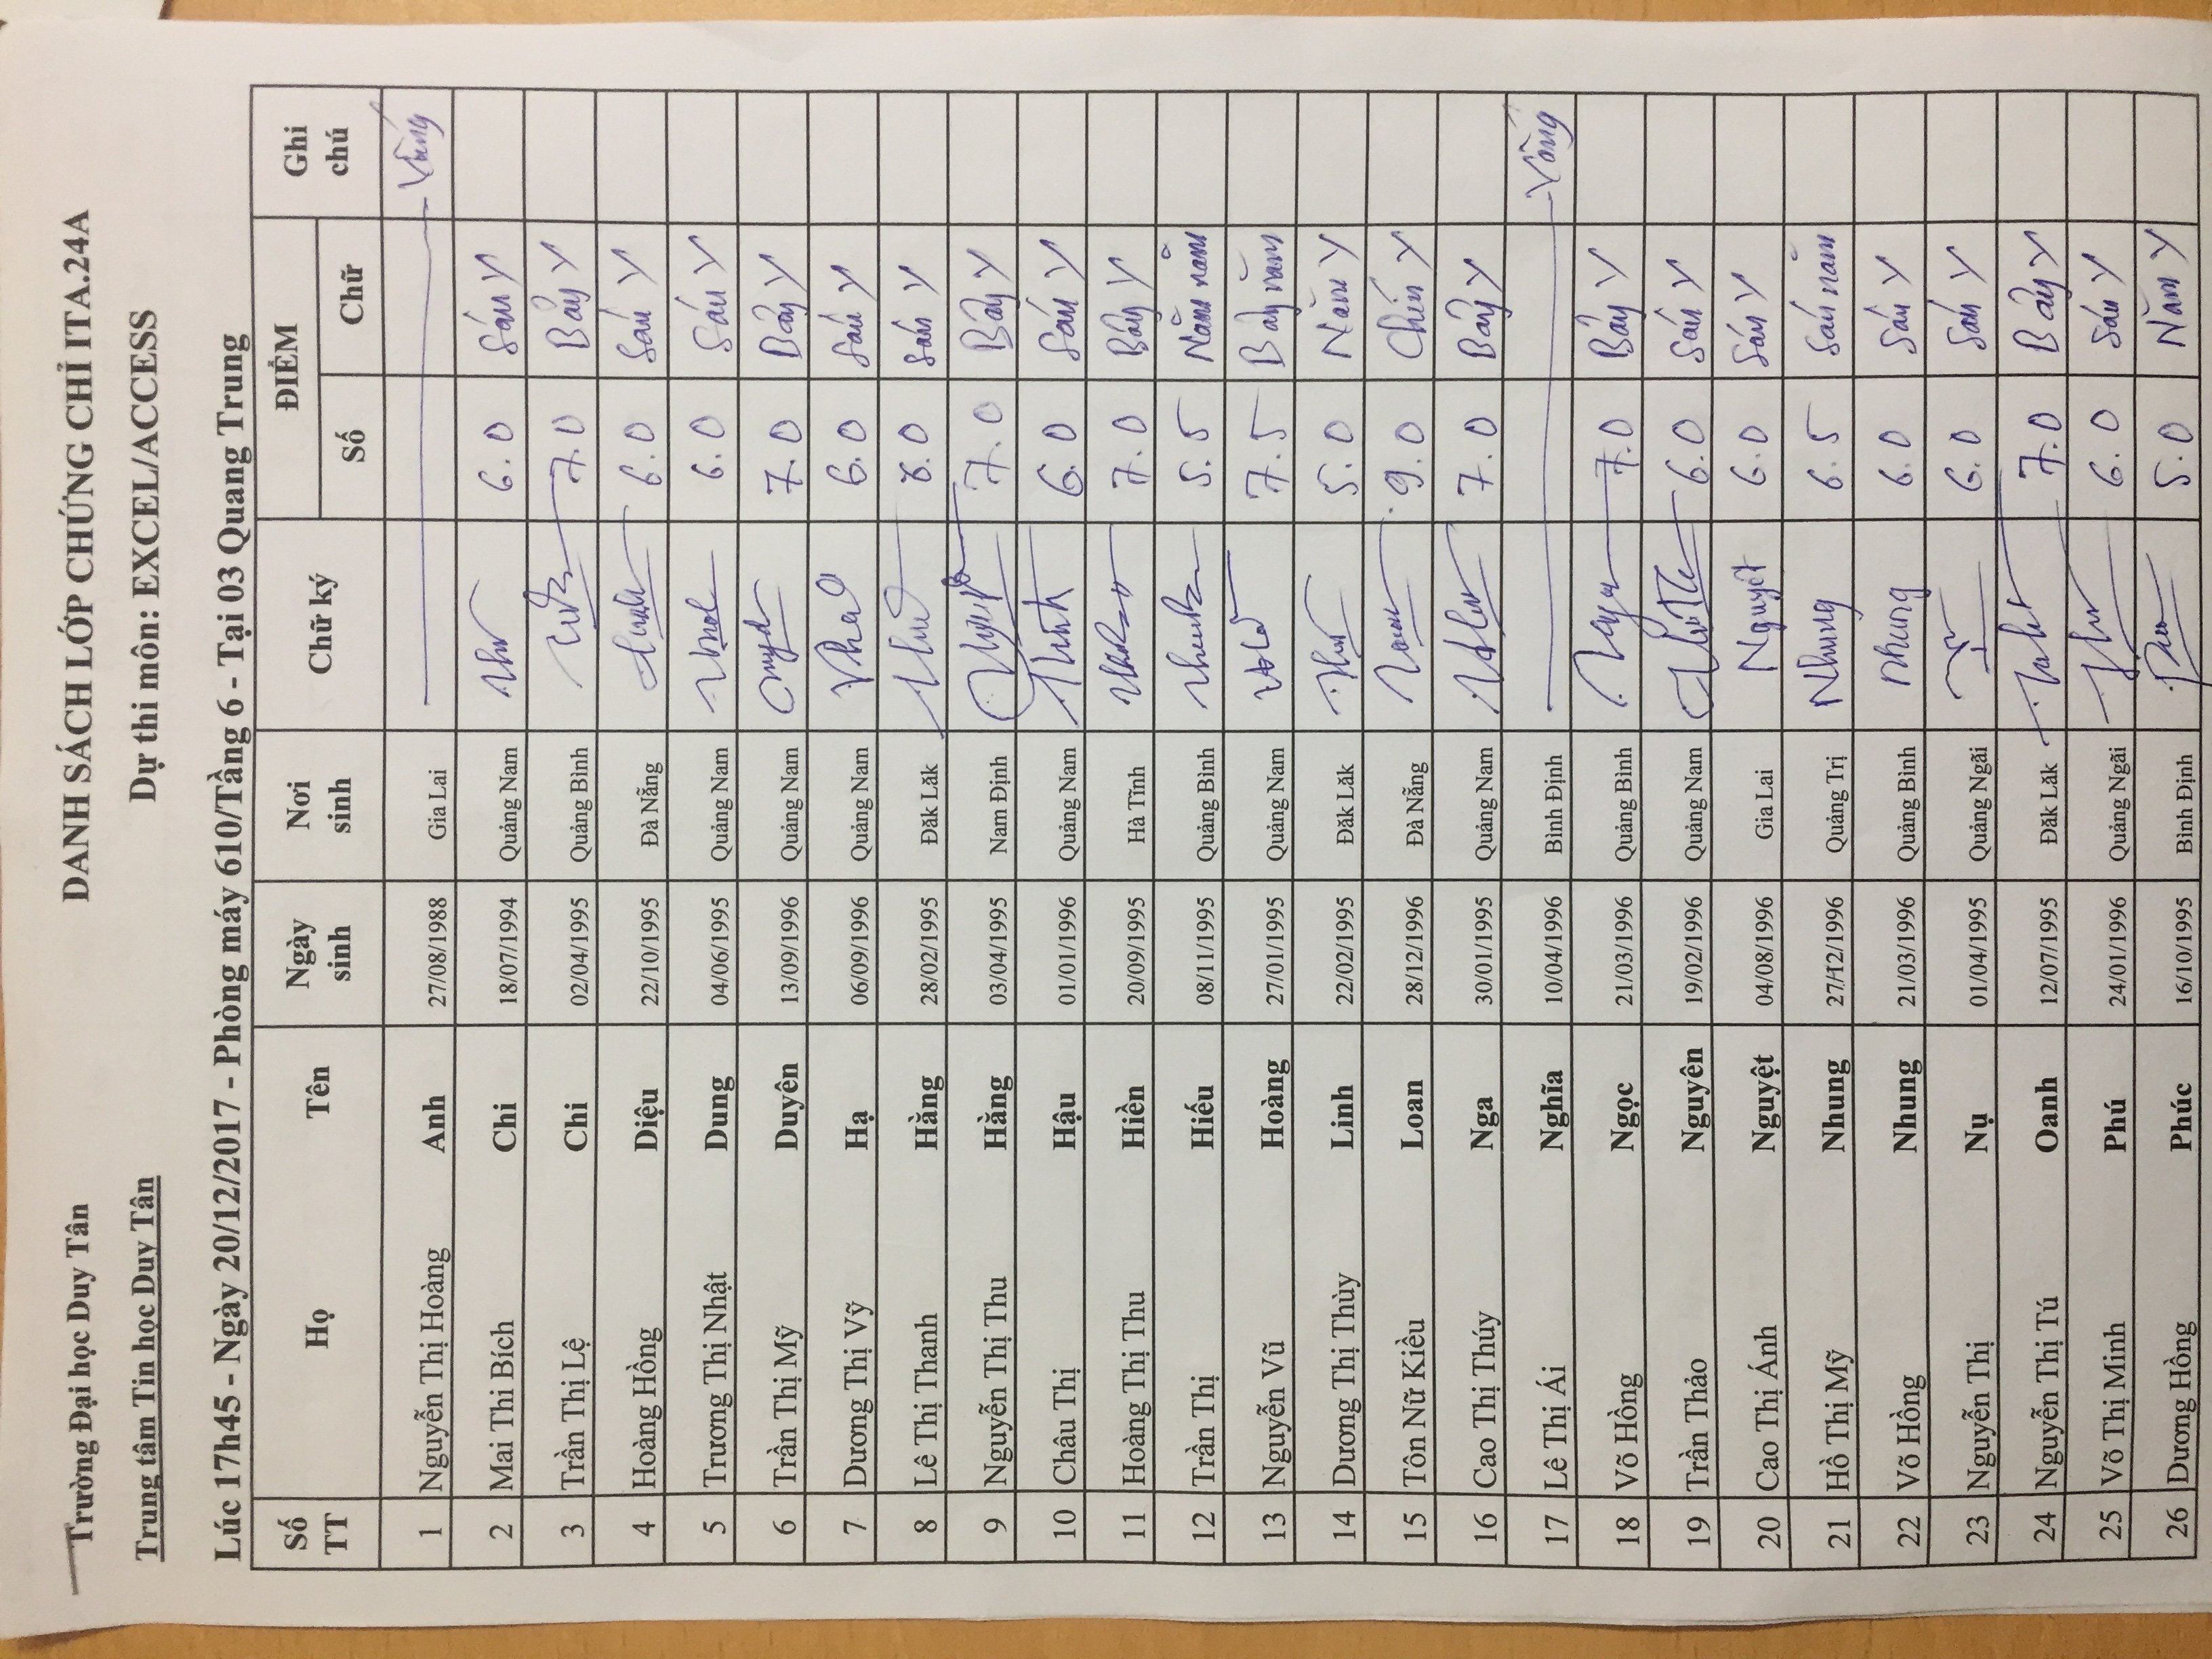 Trường Đại học Duy Tân DANH SÁCH LỚP CHỨNG CHỈ ITA.24A
Trung tâm Tin học Duy Tân Dự thi môn: EXCEL/ACCESS
Lúc 17h45 - Ngày 20/12/2017 - Phòng máy 610/Tầng 6 - Tại 03 Quang Trung
Số TT Họ Tên Ngày sinh Nơi sinh Chữ ký ĐIỂM Ghi chú
Số Chữ
1 Nguyễn Thị Hoàng Anh 27/08/1988 Gia Lai Vắng
2 Mai Thi Bích Chi 18/07/1994 Quảng Nam 6.0 Sáu Y
3 Trần Thị Lệ Chi 02/04/1995 Quảng Bình 7.0 Bảy Y
4 Hoàng Hồng Diệu 22/10/1995 Đà Nẵng 6.0 Sáu Y
5 Trương Thị Nhật Dung 04/06/1995 Quảng Nam 6.0 Sáu Y
6 Trần Thị Mỹ Duyên 13/09/1996 Quảng Nam 7.0 Bảy Y
7 Dương Thị Vỹ Hạ 06/09/1996 Quảng Nam 6.0 Sáu Y
8 Lê Thị Thanh Hằng 28/02/1995 Đăk Lăk 6.0 Sáu Y
9 Nguyễn Thị Thu Hằng 03/04/1995 Nam Định 7.0 Bảy Y
10 Châu Thị Hậu 01/01/1996 Quảng Nam 6.0 Sáu Y
11 Hoàng Thị Thu Hiền 20/09/1995 Hà Tĩnh 7.0 Bảy Y
12 Trần Thị Hiếu 08/11/1995 Quảng Bình 5.5 Năm năm
13 Nguyễn Vũ Hoàng 27/01/1995 Quảng Nam 7.5 Bảy năm
14 Dương Thị Thùy Linh 22/02/1995 Đăk Lăk 5.0 Năm Y
15 Tôn Nữ Kiều Loan 28/12/1996 Đà Nẵng 9.0 Chín Y
16 Cao Thị Thúy Nga 30/01/1995 Quảng Nam 7.0 Bảy Y
17 Lê Thị Ái Nghĩa 10/04/1996 Bình Định Vắng
18 Võ Hồng Ngọc 21/03/1996 Quảng Bình 7.0 Bảy Y
19 Trần Thảo Nguyên 19/02/1996 Quảng Nam 6.0 Sáu Y
20 Cao Thị Ánh Nguyệt 04/08/1996 Gia Lai Nguyệt 6.0 Sáu Y
21 Hồ Thị Mỹ Nhung 27/12/1996 Quảng Trị Nhung 6.5 Sáu năm
22 Võ Hồng Nhung 21/03/1996 Quảng Bình Nhung 6.0 Sáu Y
23 Nguyễn Thị Nụ 01/04/1995 Quảng Ngãi 6.0 Sáu Y
24 Nguyễn Thị Tú Oanh 12/07/1995 Đăk Lăk 7.0 Bảy Y
25 Võ Thị Minh Phú 24/01/1996 Quảng Ngãi 6.0 Sáu Y
26 Dương Hồng Phúc 16/10/1995 Bình Định 5.0 Năm Y